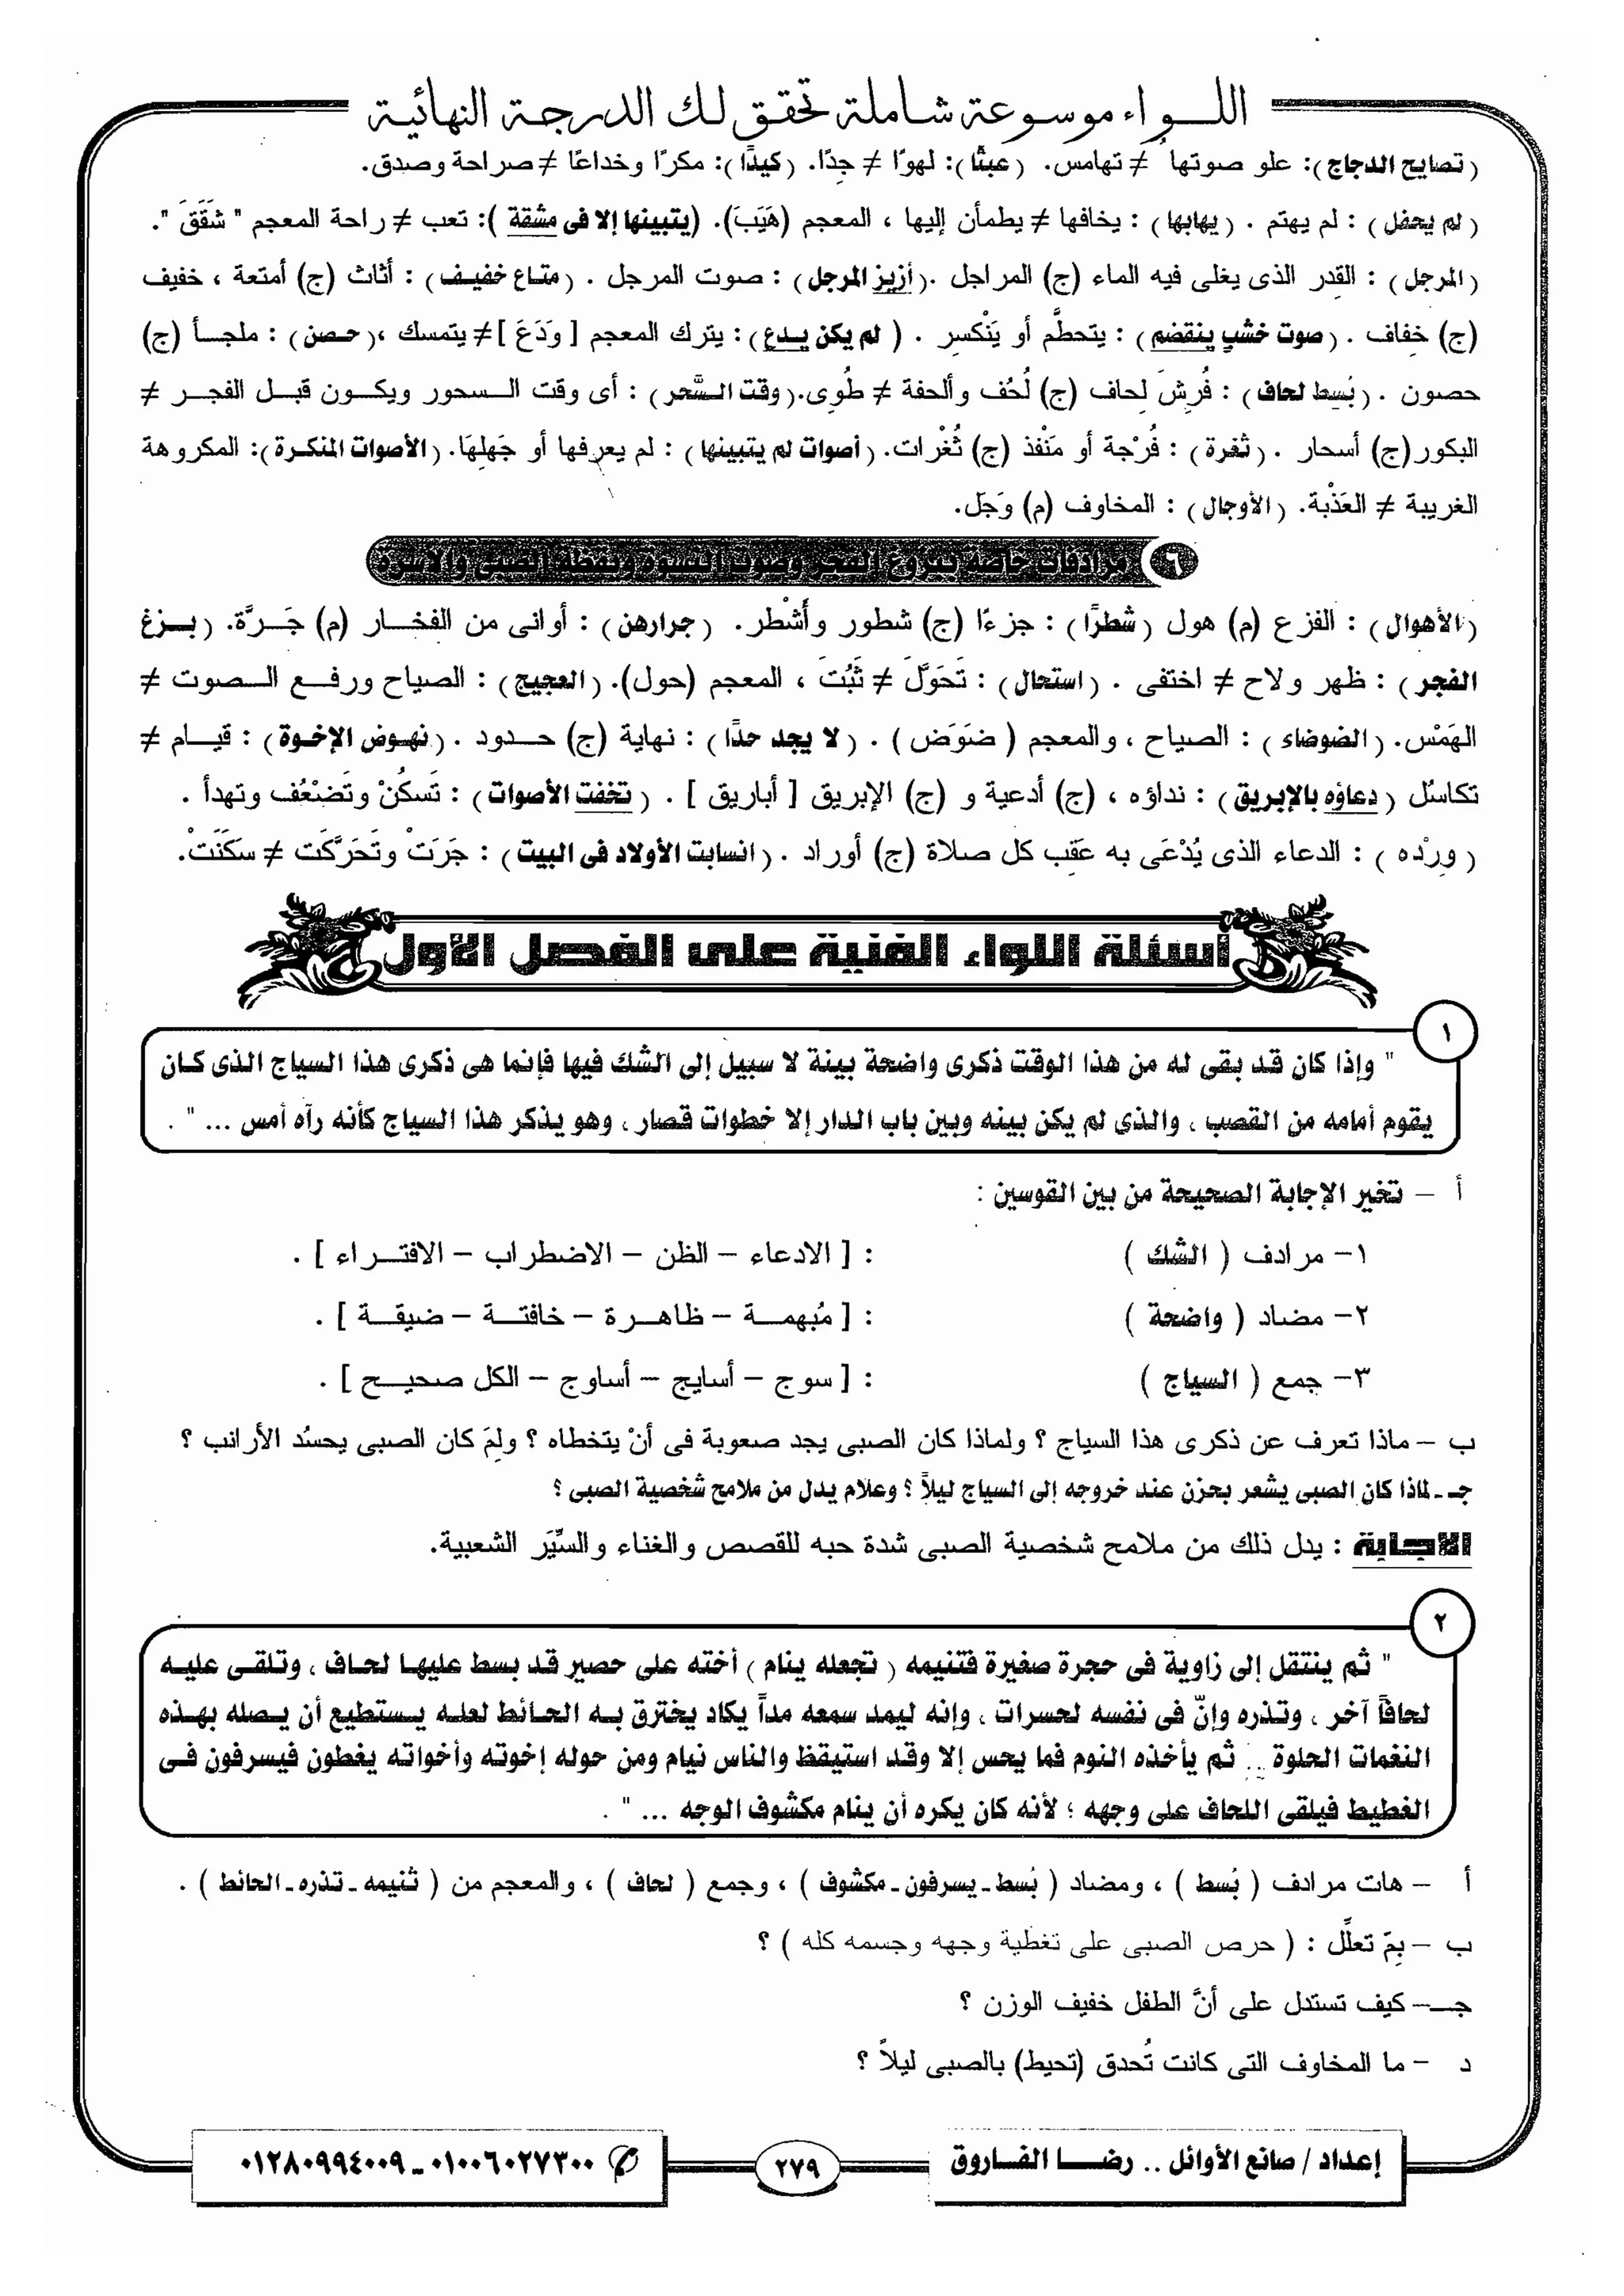 اللـواء موسوعة شاملة تحقق لك الدرجة النهائية
(تصايح الدجاج): علو صوتها ≠ تهامس. (عبثًا): لهوًا ≠ جِدًا. (كيدًا): مكرًا وخداعًا ≠ صراحة وصدق.
(لم يحفل) : لم يهتم . (يهابها) : يخافها ≠ يطمأن إليها ، المعجم (هَيَبَ). (يتبينها إلا فى مشقة ): تعب ≠ راحة المعجم " شَقَقَ ".
(المرجل) : القِدر الذى يغلى فيه الماء (ج) المراجل .(أزيز المرجل) : صوت المرجل . (متاع خفيف) : أثاث (ج) أمتعة ، خفيف
(ج) خِفاف . (صوت خشبٍ ينقضم) : يتحطَّم أو يَنْكسِر . ( لم يكن يدع) : يترك المعجم [ وَدَعَ ]≠ يتمسك ،(حصن) : ملجأ (ج)
حصون . (بُسِط لحاف) : فُرِشَ لِحاف (ج) لُحُف وألحفة ≠ طُوِى.(وقت السَّحر) : أى وقت السحور ويكون قبل الفجر ≠
البكور(ج) أسحار . (ثغرة) : فُرْجة أو مَنْفذ (ج) ثُغْرات.(أصوات لم يتبينها) : لم يعرفها أو جَهِلهَا.(الأصوات المنكرة): المكروهة
الغريبة ≠ العَذْبة. (الأوجال) : المخاوف (م) وَجَل.
٦ مرادفات خاصة ببزوغ الفجر وصوت النسوة ويقظة الصبى والأسرة
(الأهوال) : الفزع (م) هول (شطرًا) : جزءًا (ج) شطور وأشْطر. (جرارهن) : أوانى من الفخار (م) جَرَّة. (بزغ
الفجر) : ظهر ولاح ≠ اختفى . (استحال) : تَحَوَّلَ ≠ ثَبُتَ ، المعجم (حول). (العجيج) : الصياح ورفع الصوت ≠
الهَمْس. (الضوضاء) : الصياح ، والمعجم ( ضَوَضَ ) . (لا يجد حدًا) : نهاية (ج) حدود . (نهوض الإخوة) : قيام ≠
تكاسُل (دعاؤه بالإبريق) : نداؤه ، (ج) أدعية و (ج) الإبريق [ أباريق ] . (تخفت الأصوات) : تَسكُنْ وتَضْعُف وتهدأ .
(ورِدْه) : الدعاء الذى يُدْعَى به عَقِب كل صلاة (ج) أوراد . (انسابت الأولاد فى البيت) : جَرَتْ وتَحَرَّكَت ≠ سَكَنَتْ.
أسئلة اللواء الفنية على الفصل الأول
١
" وإذا كان قد بقى له من هذا الوقت ذكرى واضحة بينة لا سبيل إلى الشك فيها فإنما هى ذكرى هذا السياج الذى كان
يقوم أمامه من القصب ، والذى لم يكن بينه وبين باب الدار إلا خطوات قصار ، وهو يذكر هذا السياج كأنه رآه أمس ... " .
أ – تخير الإجابة الصحيحة من بين القوسين :
١– مرادف ( الشك ) : [ الادعاء – الظن – الاضطراب – الافتراء ] .
٢– مضاد ( واضحة ) : [ مُبهمة – ظاهرة – خافتة – ضيقة ] .
٣– جمع ( السياج ) : [ سوج – أسايج – أساوج – الكل صحيح ] .
ب – ماذا تعرف عن ذكرى هذا السياج ؟ ولماذا كان الصبى يجد صعوبة فى أنْ يتخطاه ؟ ولِمَ كان الصبى يحسُد الأرانب ؟
جـ - لماذا كان الصبى يشعر بحزن عند خروجه إلى السياج ليلاً ؟ وعلام يدل من ملامح شخصية الصبى ؟
الاجابة : يدل ذلك من ملامح شخصية الصبى شدة حبه للقصص والغناء والسِّيَر الشعبية.
٢
" ثم ينتقل إلى زاوية فى حجرة صغيرة فتنيمه (تجعله ينام) أخته على حصير قد بسط عليها لحاف ، وتلقى عليه
لحافاً آخر ، وتذره وإنّ فى نفسه لحسرات ، وإنه ليمد سمعه مداً يكاد يخترق به الحائط لعله يستطيع أن يصله بهذه
النغمات الحلوة .. ثم يأخذه النوم فما يحس إلا وقد استيقظ والناس نيام ومن حوله إخوته وأخواته يغطون فيسرفون فى
الغطيط فيلقى اللحاف على وجهه ؛ لأنه كان يكره أن ينام مكشوف الوجه ... " .
أ – هات مرادف ( بُسط ) ، ومضاد ( بُسط - يسرفون - مكشوف ) ، وجمع ( لحاف ) ، والمعجم من ( تنيمه - تذره - الحائط ) .
ب – بِمَ تعلِّل : ( حرص الصبى على تغطية وجهه وجسمه كله ) ؟
جـ– كيف تستدل على أنَّ الطفل خفيف الوزن ؟
د – ما المخاوف التى كانت تُحدق (تحيط) بالصبى ليلاً ؟
إعداد / صانع الأوائل .. رضا الفاروق
٢٧٩
✆ ٠١٠٠٦٠٢٧٣٠٠ - ٠١٢٨٠٩٩٤٠٠٩